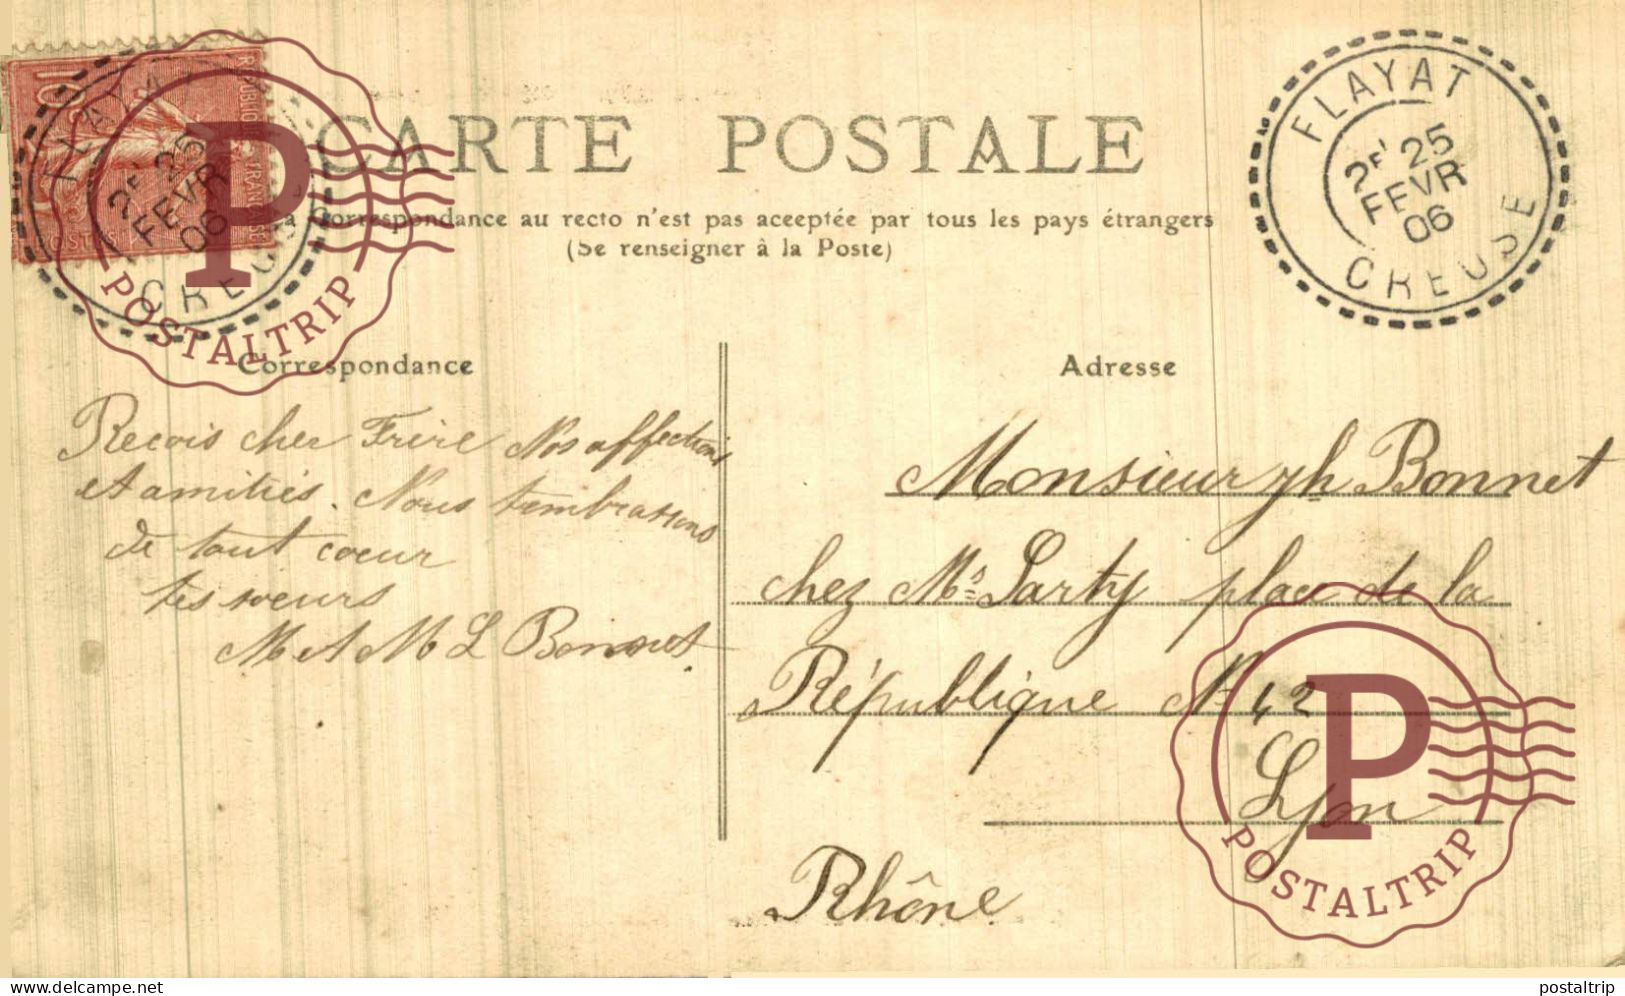 CARTE POSTALE
La Correspondance au recto n'est pas acceptée par tous les pays étrangers
(Se renseigner à la Poste)
FLAYAT
25
FEVR
06
CREUSE
10c
FLAYAT
25
FEVR
06
CREUSE
P
POSTALTRIP
Correspondance
Recois cher Frère Nos affections
et amitiés. Nous t'embrassons
de tout coeur
tes soeurs
M et M L Bonnet.
Adresse
Monsieur Bonnet
chez Mr Larty place de la
République No 42
Lyon
Rhône
P
POSTALTRIP
Delcampe.net
postaltrip